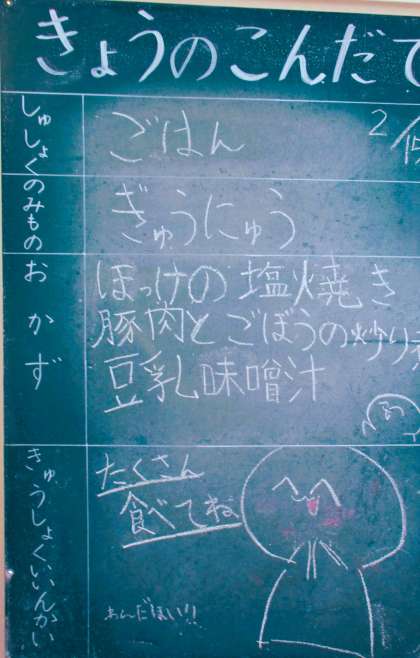 きょうのこんだて
しゅしょく
ごはん
2
のみもの
ぎゅうにゅう
おかず
ほっけの塩焼き
豚肉とごぼうの炒り
豆乳味噌汁
きゅうしょくいいんかい
たくさん
食べてね